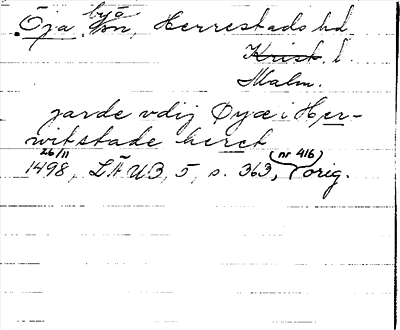 Öja, byå sn, Herrestads hd
Krist. l.
Malm.
jarde vdij Øyæ i Her-
witstade heret
26/11
1498, LÄUB, 5, s. 363, (nr 416) orig.